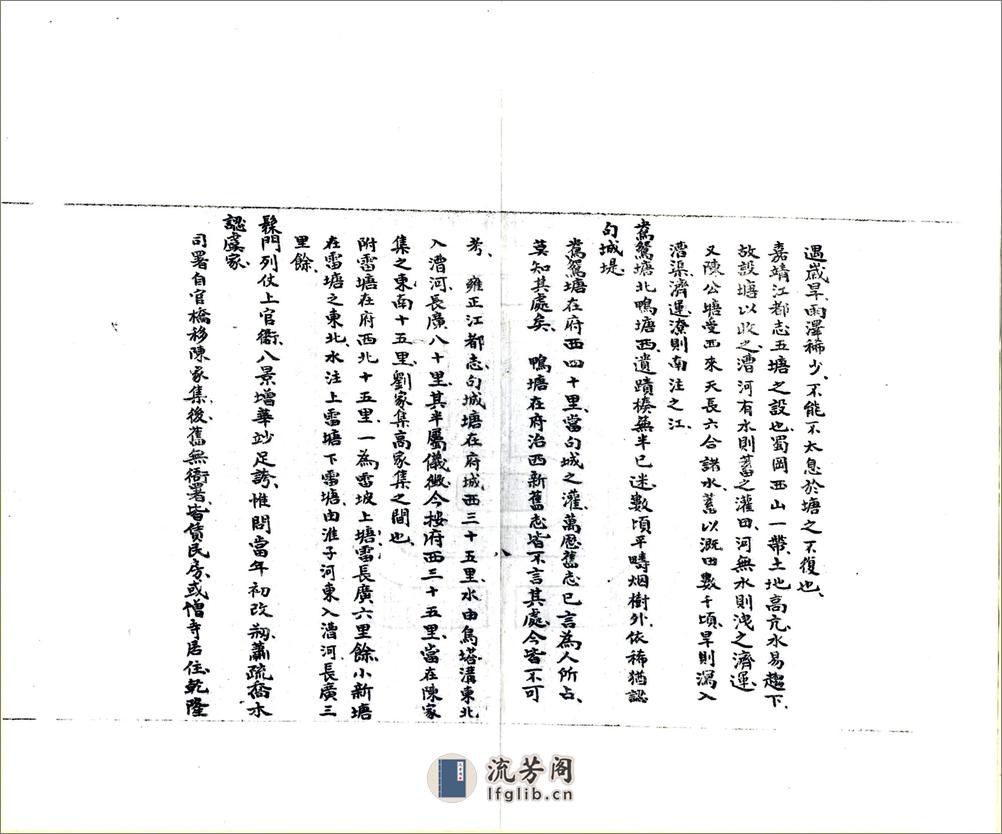 遇歲旱、雨澤稀少、不能不太息於塘之不復也、
嘉靖江都志五塘之設也蜀岡西山一帶、土地高亢水易趨下、
故設塘以收之漕河有水則蓄之灌田、河無水則洩之濟運
又陳公塘受西來天長六合諸水、蓄以溉田數千頃、旱則瀉入
漕渠濟運潦則南注之江、
鴛鴦塘北鴨塘西遺蹟榛蕪半已迷數頃平疇烟樹外依稀猶認
句城堤
鴛鴦塘在府西四十里、當句城之灌、萬歷舊志已言為人所占、
莫知其處矣 鴨塘在府治西新舊志皆不言其處今皆不可
考、 雍正江都志句城塘在府城西三十五里、水由烏塔溝東北
入漕河、長廣八十里、其半屬儀徵今按府西三十五里、當在陳家
集之東南十五里、劉家集高家集之間也、
附雷塘在府西北十五里、一為雷坡上塘雷長廣六里餘、小新塘
在雷塘之東北、水注上雷塘下雷塘、由淮子河東入漕河長廣三
里餘、
門列仗上官衙、八景增華竗足誇、惟問當年初改剏蕭疏喬木
認虞家、
司署自官橋移陳家集、後舊無衙署、皆賃民房、或僧寺居住、乾隆
流芳阁
lfglib.cn